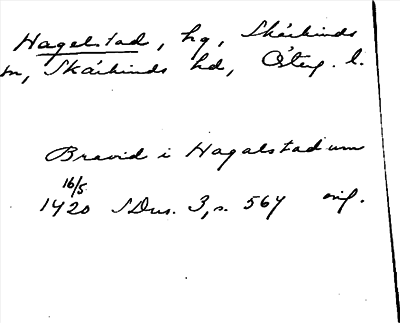 Hagelstad, hg, Skärkinds
sn, Skärkinds hd, Österg. l.
Bravid i Hagalstadum
16/5
1420 SDns. 3, s. 567 orig.